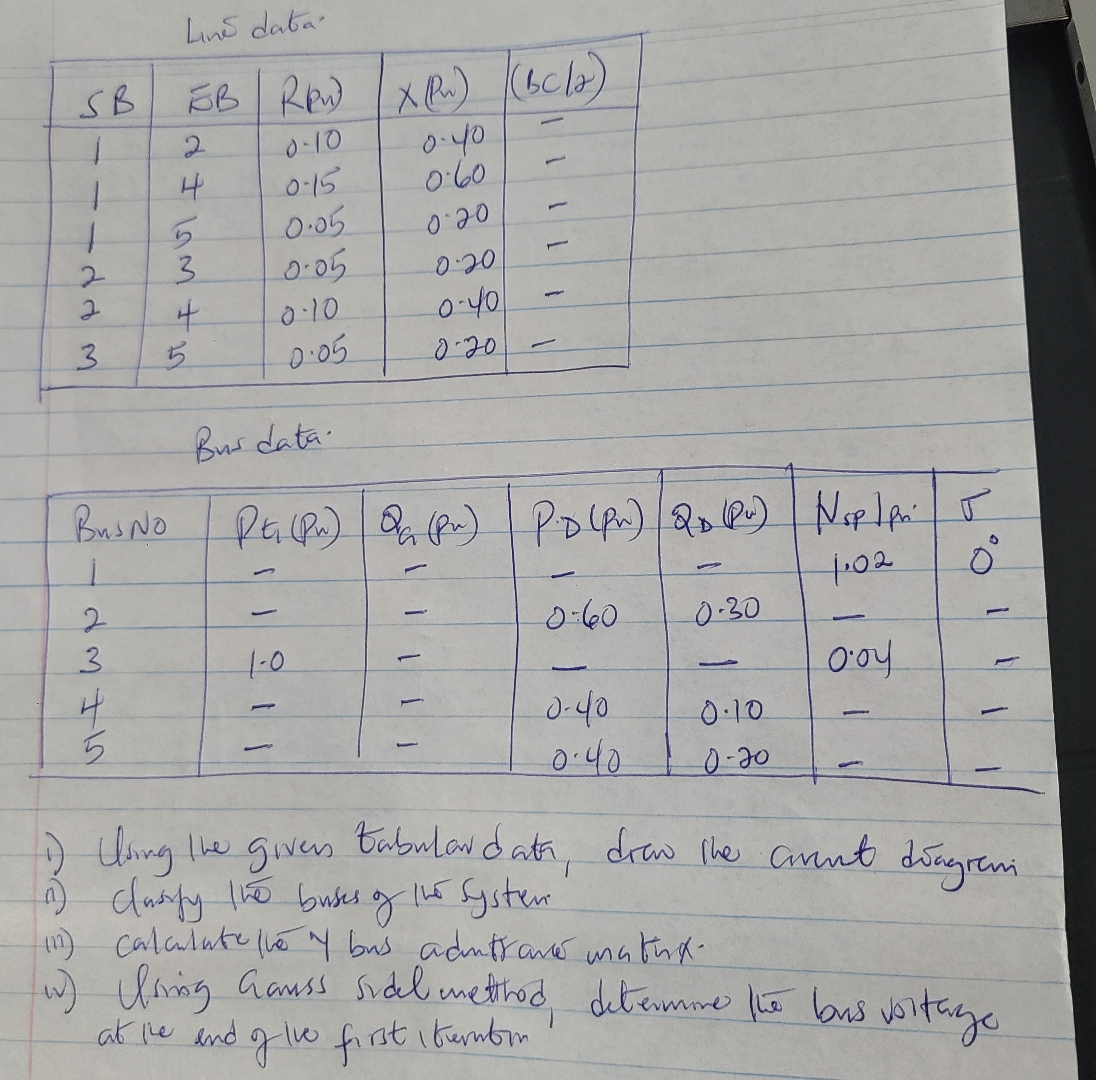 Line data.
SB EB R(Pu) X(Pu) (BC/2)
1 2 0.10 0.40 -
1 4 0.15 0.60 -
1 5 0.05 0.20 -
2 3 0.05 0.20 -
2 4 0.10 0.40 -
3 5 0.05 0.20 -
Bus data.
Bus No PG (Pu) QG (Pu) P.D (Pu) QD (Pu) |Vsp| pu. δ
1 - - - - 1.02 0°
2 - - 0.60 0.30 - -
3 1.0 - - - 0.04 -
4 - - 0.40 0.10 - -
5 - - 0.40 0.20 - -
i) Using the given tabular data, draw the circuit diagram
ii) classify the buses of the system
iii) calculate the Y bus admittance matrix.
iv) Using Gauss sidel method, determine the bus voltage
at the end of the first iteration